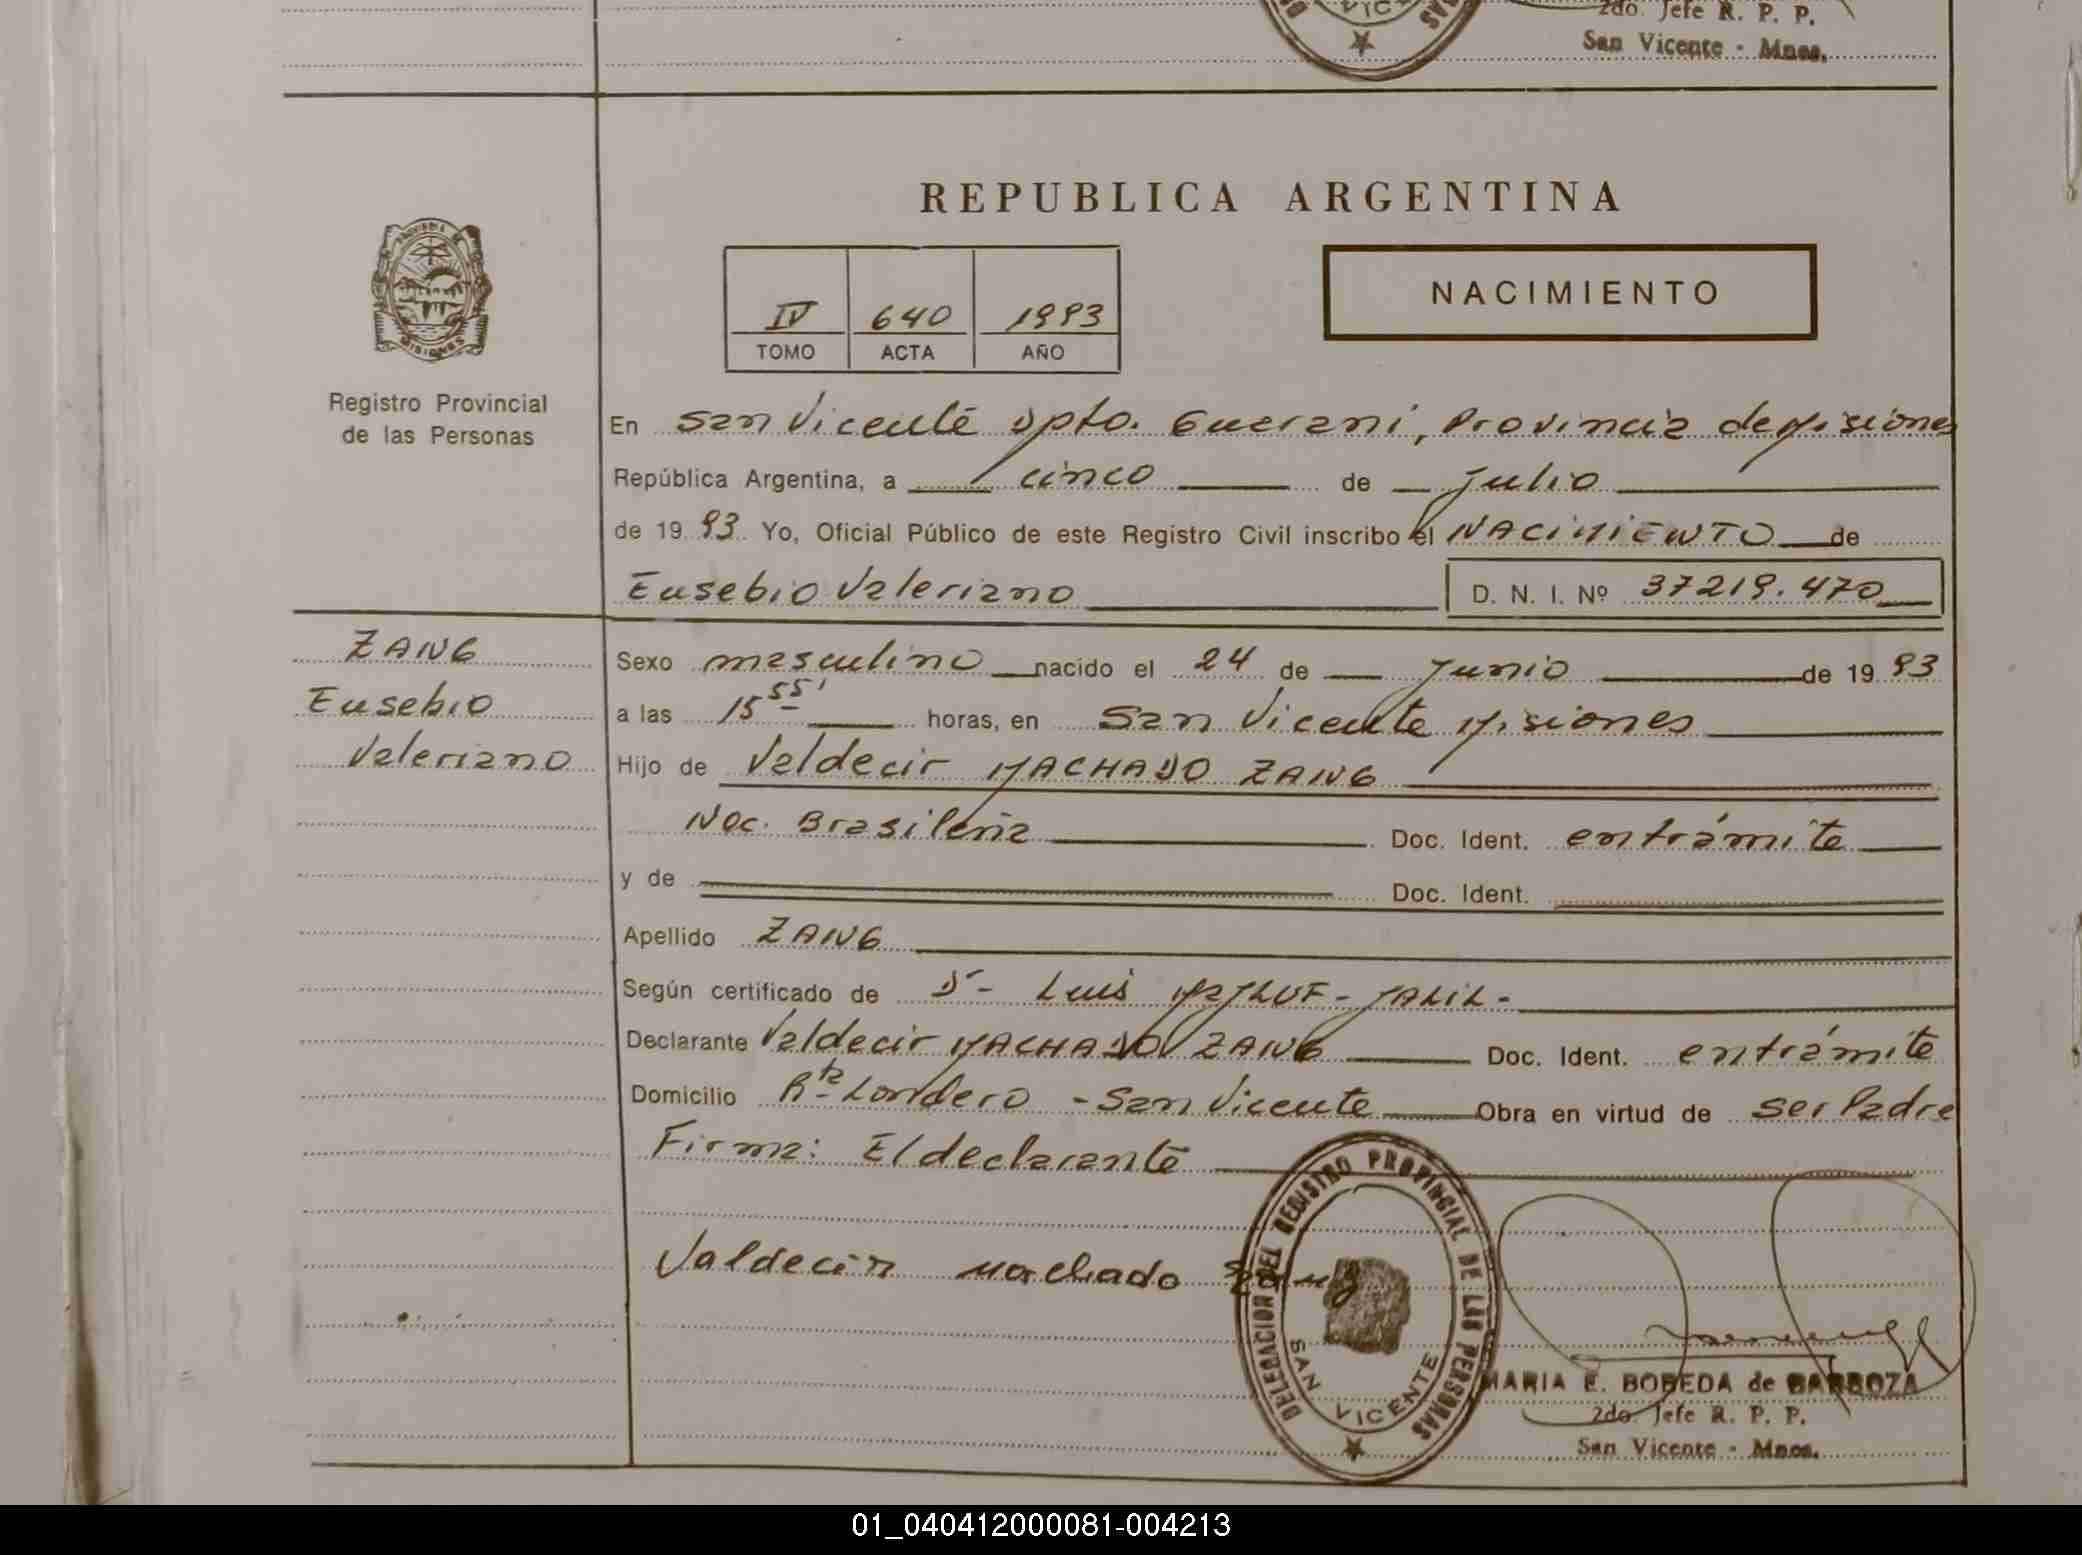 2do. Jefe R. P. P.
San Vicente - Mnes.
REPUBLICA ARGENTINA
NACIMIENTO
IV 640 1993
TOMO ACTA AÑO
PROVINCIA DE MISIONES
Registro Provincial
de las Personas
En San Vicente Dpto. Guarani, Provincia de Misiones
República Argentina, a cinco de Julio
de 19 93 Yo, Oficial Público de este Registro Civil inscribo el NACIMIENTO de
Eusebio Valeriano D. N. I. Nº 37219.470
ZANG
Eusebio
Valeriano
Sexo masculino nacido el 24 de Junio de 19 93
a las 15 55' horas, en San Vicente Misiones
Hijo de Valdecir MACHADO ZANG
Nac. Brasileña Doc. Ident. en trámite
y de Doc. Ident.
Apellido ZANG
Según certificado de Dr- Luis JALIL-
Declarante Valdecir MACHADO ZANG Doc. Ident. en trámite
Domicilio Rta Londero - San Vicente Obra en virtud de ser Padre
Firma: El declarante
Valdecir Machado Zang
DELEGACION DEL REGISTRO PROVINCIAL DE LAS PERSONAS
SAN VICENTE
MARIA E. BOBEDA de BARBOZA
2do. Jefe R. P. P.
San Vicente - Mnes.
01_040412000081-004213